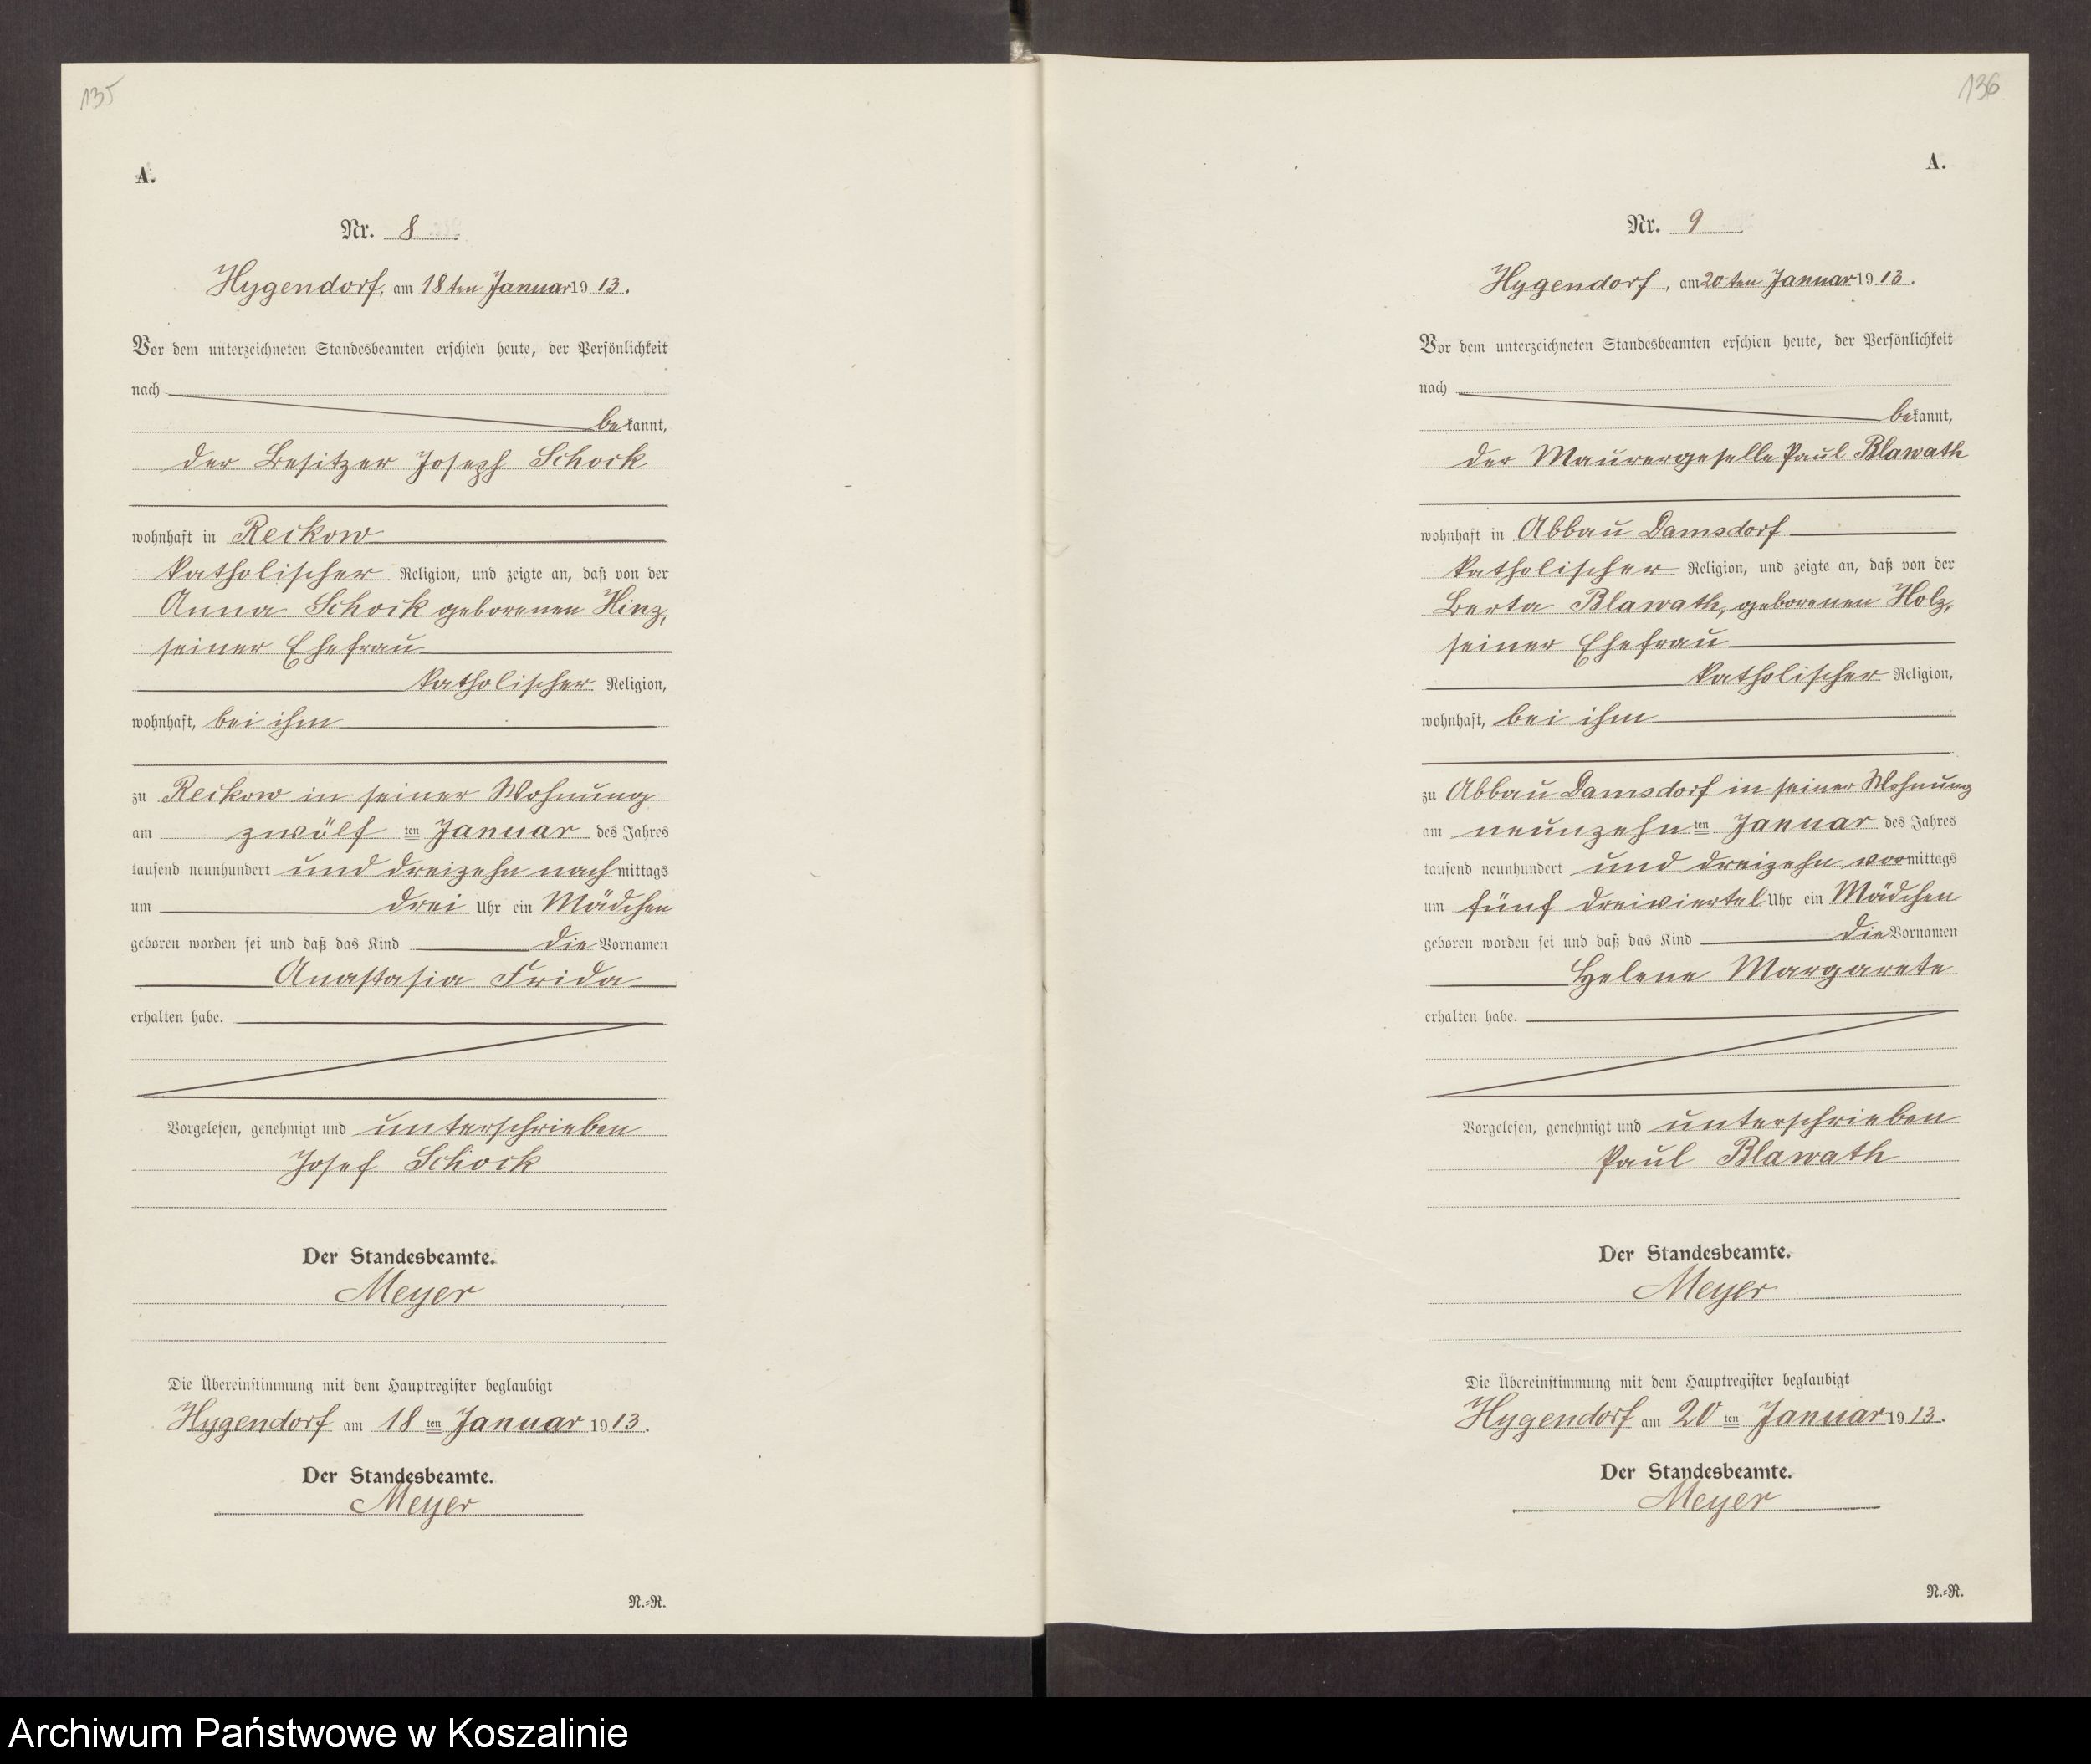 135
A.
Nr. 8
Hygendorf, am 18ten Januar 1913.
Vor dem unterzeichneten Standesbeamten erschien heute, der Persönlichkeit
nach
bekannt,
der Besitzer Joseph Schock
wohnhaft in Reckow
katholischer Religion, und zeigte an, daß von der
Anna Schock geborenen Hinz,
seiner Ehefrau
katholischer Religion,
wohnhaft, bei ihm
zu Reckow in seiner Wohnung
am zwölf ten Januar des Jahres
tausend neunhundert und dreizehn nachmittags
um drei Uhr ein Mädchen
geboren worden sei und daß das Kind die Vornamen
Anastasia Frida
erhalten habe.
Vorgelesen, genehmigt und unterschrieben
Josef Schock
Der Standesbeamte.
Meyer
Die Übereinstimmung mit dem Hauptregister beglaubigt
Hygendorf am 18 ten Januar 1913.
Der Standesbeamte.
Meyer
N.-R.
136
A.
Nr. 9
Hygendorf, am 20ten Januar 1913.
Vor dem unterzeichneten Standesbeamten erschien heute, der Persönlichkeit
nach
bekannt,
der Maurergeselle Paul Blawath
wohnhaft in Abbau Damsdorf
katholischer Religion, und zeigte an, daß von der
Berta Blawath, geborenen Holz,
seiner Ehefrau
katholischer Religion,
wohnhaft, bei ihm
zu Abbau Damsdorf in seiner Wohnung
am neunzehn ten Januar des Jahres
tausend neunhundert und dreizehn vormittags
um fünf dreiviertel Uhr ein Mädchen
geboren worden sei und daß das Kind die Vornamen
Helene Margarete
erhalten habe.
Vorgelesen, genehmigt und unterschrieben
Paul Blawath
Der Standesbeamte.
Meyer
Die Übereinstimmung mit dem Hauptregister beglaubigt
Hygendorf am 20 ten Januar 1913.
Der Standesbeamte.
Meyer
N.-R.
Archiwum Państwowe w Koszalinie